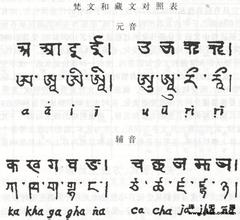 梵文和藏文对照表
元音
अ आ इ ई। उ ऊ ऋ ॠ।
ཨ་ ཨཱ་ ཨི་ ཨཱི། ཨུ་ ཨཱུ་ རྀ་ རཱྀ།
a ā i ī u ū ṛi ṛī
辅音
क ख ग घ ङ। च छ ज झ ञ।
ཀ་ ཁ་ ག་ གྷ་ ང་། ཙ་ ཚ་ ཛ་ ཛྷ་ ཉ།
ka kha ga gha ṅa ca cha